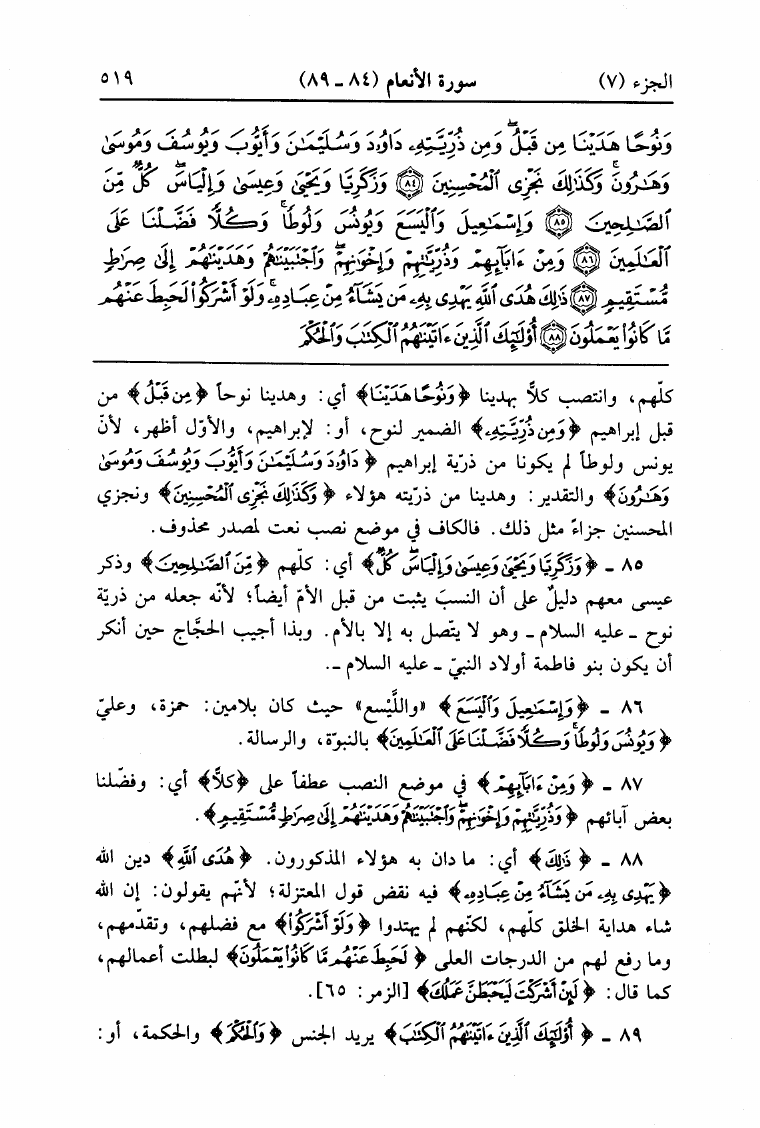 الجزء (٧) سورة الأنعام (٨٤ ـ ٨٩) ٥١٩
وَنُوحًا هَدَيْنَا مِن قَبْلُ ۖ وَمِن ذُرِّيَّتِهِۦ دَاوُۥدَ وَسُلَيْمَـٰنَ وَأَيُّوبَ وَيُوسُفَ وَمُوسَىٰ
وَهَـٰرُونَ ۚ وَكَذَٰلِكَ نَجْزِى ٱلْمُحْسِنِينَ ﴿٨٤﴾ وَزَكَرِيَّا وَيَحْيَىٰ وَعِيسَىٰ وَإِلْيَاسَ ۖ كُلٌّ مِّنَ
ٱلصَّـٰلِحِينَ ﴿٨٥﴾ وَإِسْمَـٰعِيلَ وَٱلْيَسَعَ وَيُونُسَ وَلُوطًا ۚ وَكُلًّا فَضَّلْنَا عَلَى
ٱلْعَـٰلَمِينَ ﴿٨٦﴾ وَمِنْ ءَابَآئِهِمْ وَذُرِّيَّـٰتِهِمْ وَإِخْوَٰنِهِمْ ۖ وَٱجْتَبَيْنَـٰهُمْ وَهَدَيْنَـٰهُمْ إِلَىٰ صِرَٰطٍ
مُّسْتَقِيمٍ ﴿٨٧﴾ ذَٰلِكَ هُدَى ٱللَّهِ يَهْدِى بِهِۦ مَن يَشَآءُ مِنْ عِبَادِهِۦ ۚ وَلَوْ أَشْرَكُوا۟ لَحَبِطَ عَنْهُم
مَّا كَانُوا۟ يَعْمَلُونَ ﴿٨٨﴾ أُو۟لَـٰٓئِكَ ٱلَّذِينَ ءَاتَيْنَـٰهُمُ ٱلْكِتَـٰبَ وَٱلْحُكْمَ
كلّهم، وانتصب كلاًّ بهدينا ﴿وَنُوحًا هَدَيْنَا﴾ أي: وهدينا نوحاً ﴿مِن قَبْلُ﴾ من
قبل إبراهيم ﴿وَمِن ذُرِّيَّتِهِۦ﴾ الضمير لنوح، أو: لإبراهيم، والأوّل أظهر، لأنّ
يونس ولوطاً لم يكونا من ذريّة إبراهيم ﴿دَاوُۥدَ وَسُلَيْمَـٰنَ وَأَيُّوبَ وَيُوسُفَ وَمُوسَىٰ
وَهَـٰرُونَ﴾ والتقدير: وهدينا من ذريّته هؤلاء ﴿وَكَذَٰلِكَ نَجْزِى ٱلْمُحْسِنِينَ﴾ ونجزي
المحسنين جزاءً مثل ذلك. فالكاف في موضع نصب نعت لمصدر محذوف.
٨٥ ـ ﴿وَزَكَرِيَّا وَيَحْيَىٰ وَعِيسَىٰ وَإِلْيَاسَ ۖ كُلٌّ﴾ أي: كلّهم ﴿مِّنَ ٱلصَّـٰلِحِينَ﴾ وذكر
عيسى معهم دليلٌ على أن النسبَ يثبت من قبل الأمّ أيضاً؛ لأنّه جعله من ذريّة
نوح ـ عليه السلام ـ وهو لا يتّصل به إلا بالأم. وبذا أجيب الحجَّاج حين أنكر
أن يكون بنو فاطمة أولاد النبيّ ـ عليه السلام ـ.
٨٦ ـ ﴿وَإِسْمَـٰعِيلَ وَٱلْيَسَعَ﴾ «واللَّيْسع» حيث كان بلامين: حمزة، وعليّ
﴿وَيُونُسَ وَلُوطًا ۚ وَكُلًّا فَضَّلْنَا عَلَى ٱلْعَـٰلَمِينَ﴾ بالنبوّة، والرسالة.
٨٧ ـ ﴿وَمِنْ ءَابَآئِهِمْ﴾ في موضع النصب عطفاً على ﴿كلاًّ﴾ أي: وفضّلنا
بعض آبائهم ﴿وَذُرِّيَّـٰتِهِمْ وَإِخْوَٰنِهِمْ ۖ وَٱجْتَبَيْنَـٰهُمْ وَهَدَيْنَـٰهُمْ إِلَىٰ صِرَٰطٍ مُّسْتَقِيمٍ﴾.
٨٨ ـ ﴿ذَٰلِكَ﴾ أي: ما دان به هؤلاء المذكورون. ﴿هُدَى ٱللَّهِ﴾ دين الله
﴿يَهْدِى بِهِۦ مَن يَشَآءُ مِنْ عِبَادِهِۦ﴾ فيه نقض قول المعتزلة؛ لأنّهم يقولون: إن الله
شاء هداية الخلق كلّهم، لكنّهم لم يهتدوا ﴿وَلَوْ أَشْرَكُوا۟﴾ مع فضلهم، وتقدّمهم،
وما رفع لهم من الدرجات العلى ﴿لَحَبِطَ عَنْهُم مَّا كَانُوا۟ يَعْمَلُونَ﴾ لبطلت أعمالهم،
كما قال: ﴿لَئِنْ أَشْرَكْتَ لَيَحْبَطَنَّ عَمَلُكَ﴾ [الزمر: ٦٥].
٨٩ ـ ﴿أُو۟لَـٰٓئِكَ ٱلَّذِينَ ءَاتَيْنَـٰهُمُ ٱلْكِتَـٰبَ﴾ يريد الجنس ﴿وَٱلْحُكْمَ﴾ والحكمة، أو: